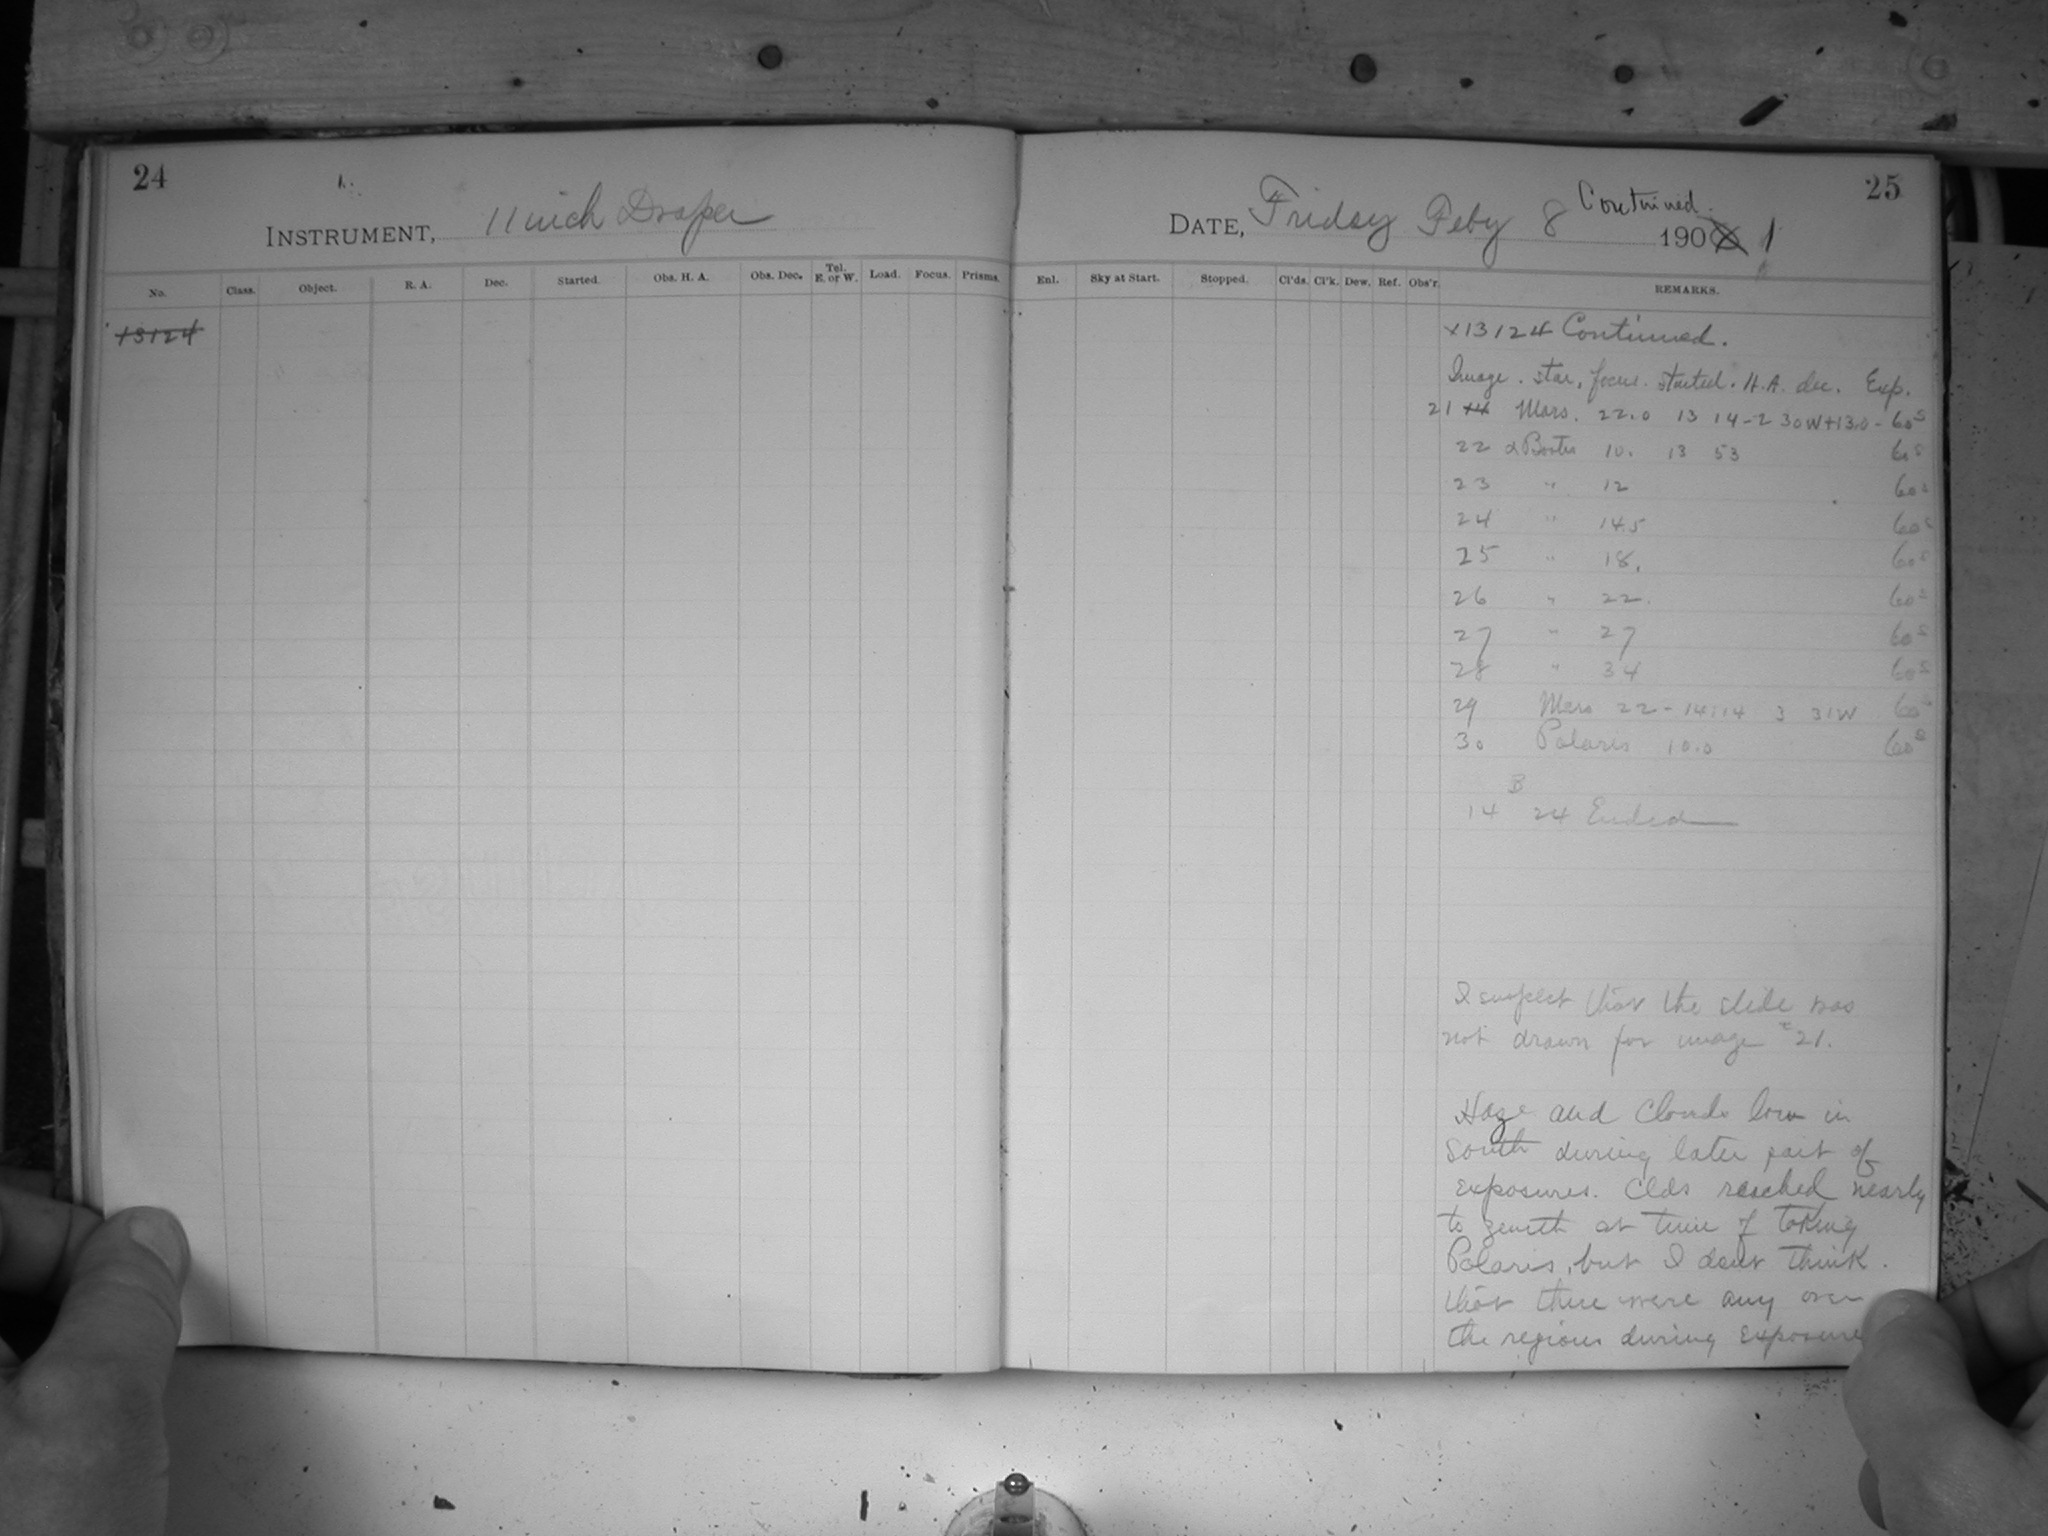 24
INSTRUMENT, 11 inch Draper
No. Class. Object. R. A. Dec. Started. Obs. H. A. Obs. Dec. Tel. E. or W. Load. Focus. Prisms.
13124
25
DATE, Friday Feby 8 Continued. 190 1
Enl. Sky at Start. Stopped. Cl'ds. Cl'k. Dew. Ref. Obs'r. REMARKS.
x13124 Continued.
Image. star, focus. started. H.A. dec. Exp.
21 Mars. 22.0 13 14-2 30W+13.0- 60s
22 α Bootes 10. 13 53 60s
23 " 12 60s
24 " 14.5 60s
25 " 18. 60s
26 " 22. 60s
27 " 27 60s
28 " 34 60s
29 Mars 22 - 14:14 3 31W 60s
30 Polaris 10.0 60s
B
14 24 Ended
I suspect that the slide was
not drawn for image 21.
Haze and Clouds low in
South during later part of
exposures. Clds reached nearly
to zenith at time of taking
Polaris, but I dont think
that there were any over
the regions during exposure